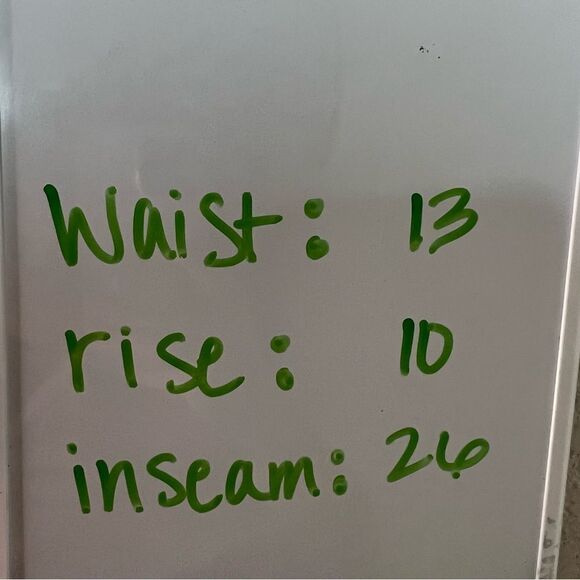 Waist: 13
rise: 10
inseam: 26